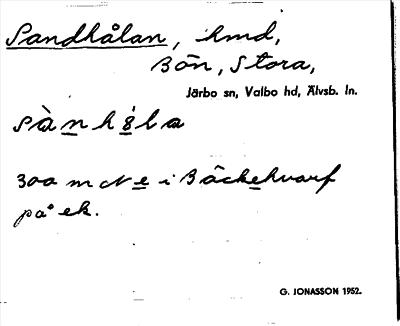 Sandhålan, hmd,
Bön, Stora,
Järbo sn, Valbo hd, Älvsb. ln.
sànhåla
300 m N e i Bäckehvarf
på ek.
G. JONASSON 1952.